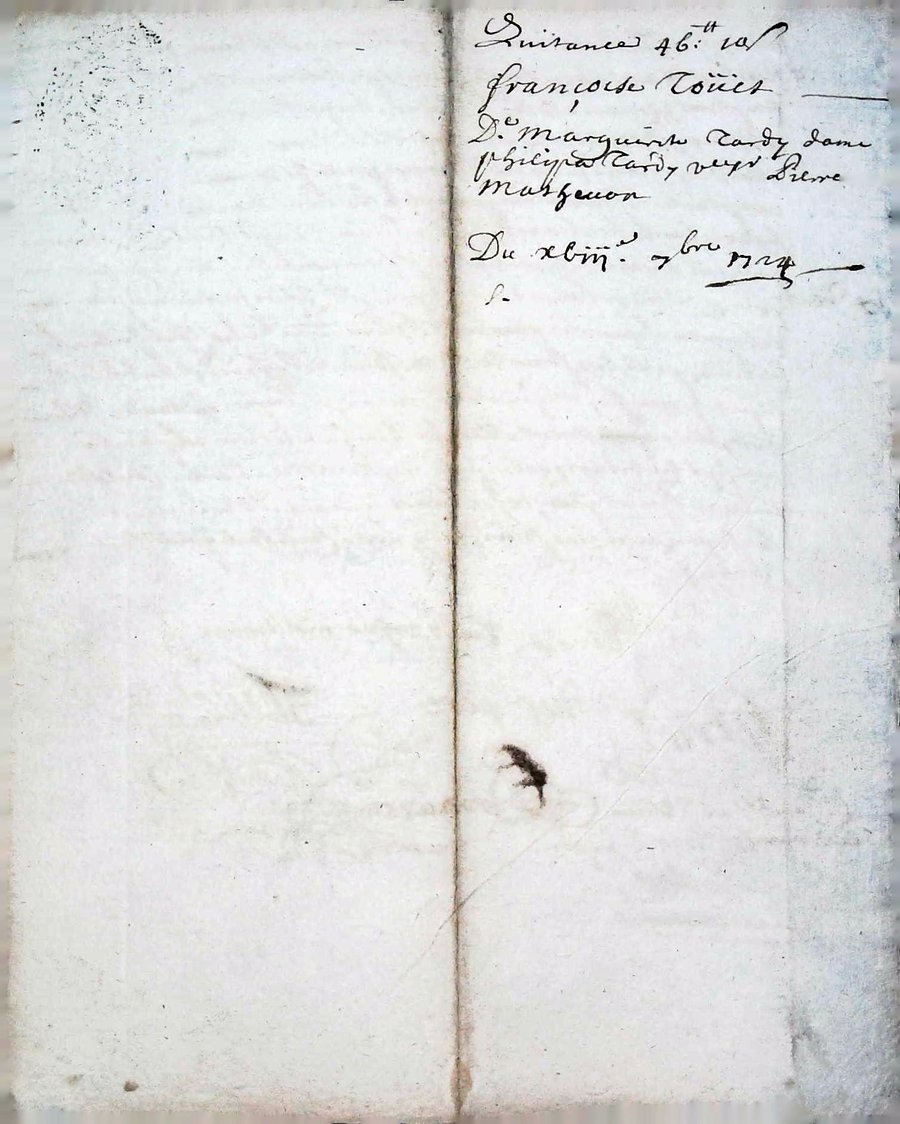 Quitance 46:tt 10s
françoise Toüet
De. Marguerite Tardy dame
philipa Tardy Pierre
Mathevon
Du xbiiie. 7bre 1724
s.